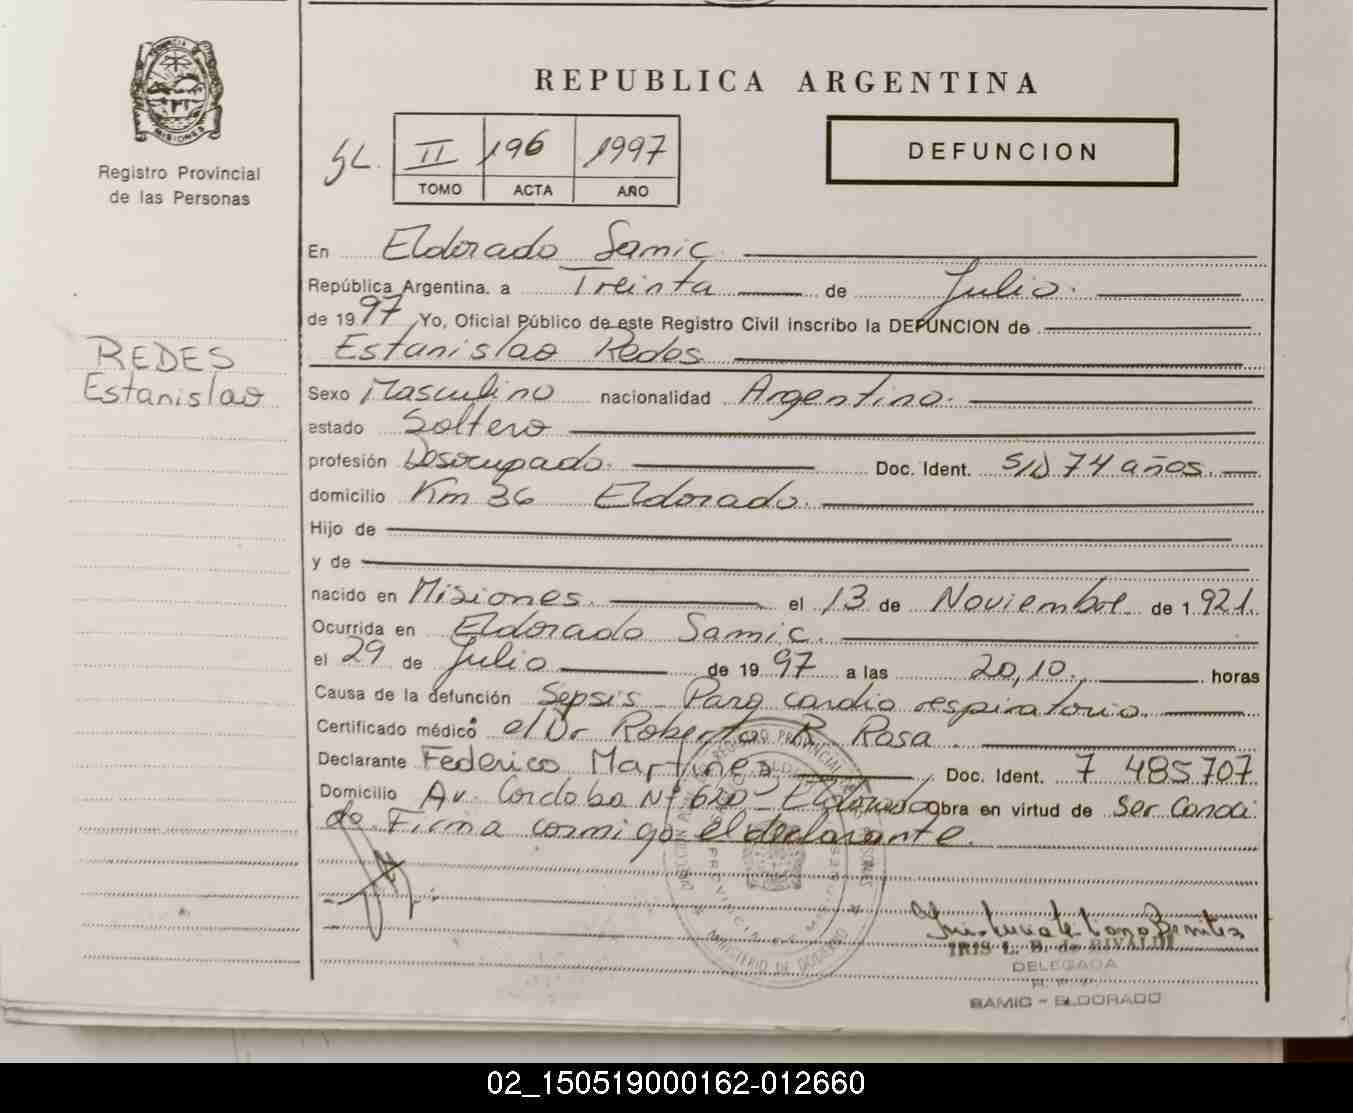 REPUBLICA ARGENTINA
PROVINCIA DE MISIONES
Registro Provincial
de las Personas
SL. II 196 1997
TOMO ACTA AÑO
DEFUNCION
En Eldorado Samic.
República Argentina. a Treinta de Julio.
de 1997, Yo, Oficial Público de este Registro Civil inscribo la DEFUNCION de
Estanislao Redes
REDES
Estanislao
Sexo Masculino nacionalidad Argentino.
estado Soltero
profesión Desocupado. Doc. Ident. S/D 74 años.
domicilio Km 36 Eldorado.
Hijo de
y de
nacido en Misiones. el 13 de Noviembre de 1.921.
Ocurrida en Eldorado Samic.
el 29 de Julio de 1997 a las 20,10. horas
Causa de la defunción Sepsis - Paro cardio respiratorio.
Certificado médico el Dr Roberto R Rosa.
Declarante Federico Martinez, Doc. Ident. 7 485707
Domicilio Av. Cordoba Nº 620 - Eldorado obra en virtud de Ser Conoci
do Firma conmigo el declarante.
DELEGADA
SAMIC - ELDORADO
02_150519000162-012660